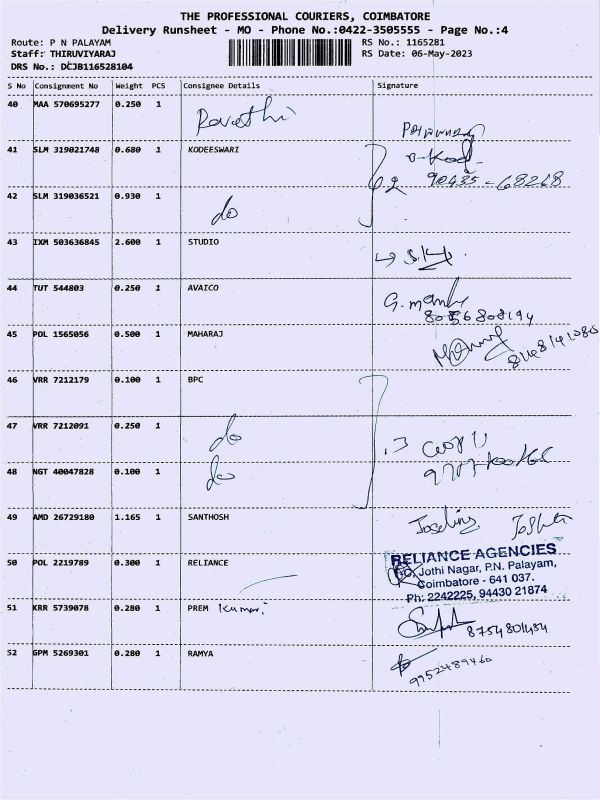 THE PROFESSIONAL COURIERS, COIMBATORE
Delivery Runsheet - MO - Phone No.:0422-3505555 - Page No.:4
Route: P N PALAYAM RS No.: 1165281
Staff: THIRUVIYARAJ RS Date: 06-May-2023
DRS No.: DCJB116528104
S No Consignment No Weight PCS Consignee Details Signature
40 MAA 570695277 0.250 1 Revathi
41 SLM 319021748 0.680 1 KODEESWARI
90435-68268
42 SLM 319036521 0.930 1 do
43 IXM 503636845 2.600 1 STUDIO
44 TUT 544803 0.250 1 AVAICO G. mani
8056808194
45 POL 1565056 0.500 1 MAHARAJ
46 VRR 7212179 0.100 1 BPC
47 VRR 7212091 0.250 1 do
48 NGT 40047828 0.100 1 do
49 AMD 26729180 1.165 1 SANTHOSH
50 POL 2219789 0.300 1 RELIANCE RELIANCE AGENCIES
Jothi Nagar, P.N. Palayam,
Coimbatore - 641 037.
Ph: 2242225, 94430 21874
51 KRR 5739078 0.280 1 PREM Kumari
8754801434
52 GPM 5269301 0.280 1 RAMYA
9952489460